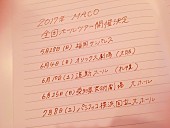 2017年 MACO
全国ホールツアー開催決定
5月28日(日) 福岡サンパレス
6月4日(日) オリックス劇場 (大阪)
6月17日(土) 道新ホール (札幌)
6月25日(日) 愛知県芸術劇場 大ホール
7月8日(土) パシフィコ横浜国立大ホール